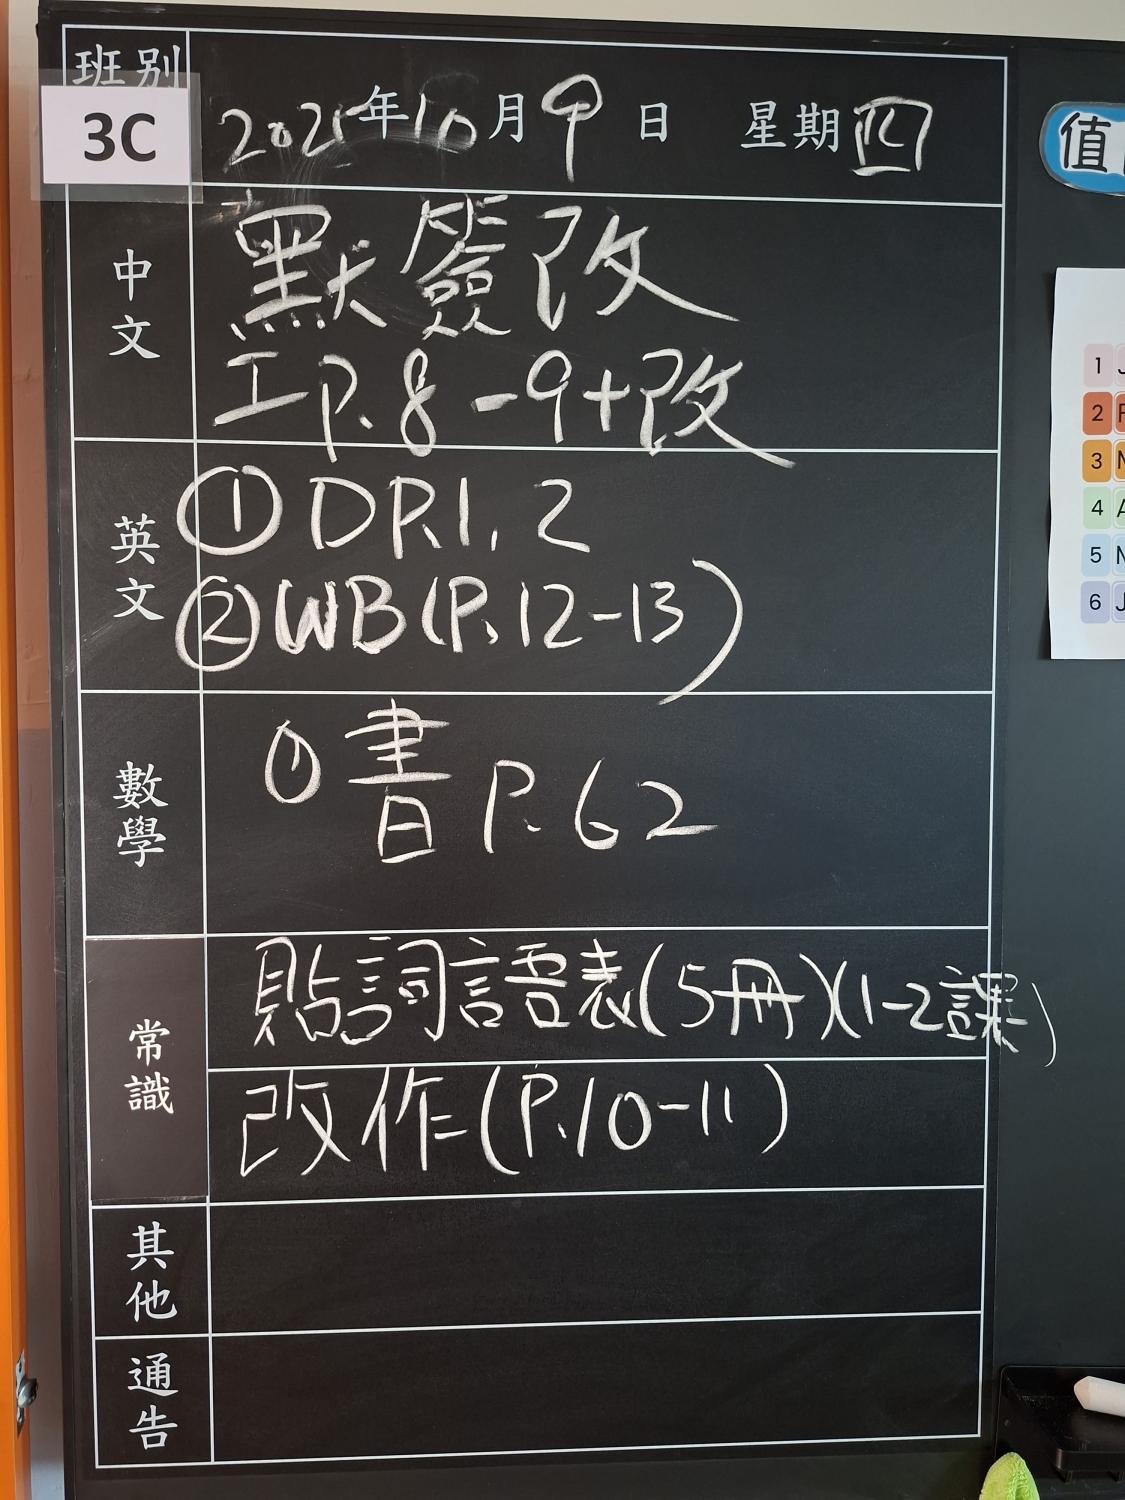 班別
3C
2025年10月9日 星期四
中文
默簽改
工P.8-9+改
英文
① DP.1, 2
② WB(P.12-13)
數學
① 書 P.62
常識
貼詞語表(5冊)(1-2課)
改作(P.10-11)
其他
通告
值
1 J
2
3
4 A
5
6 J